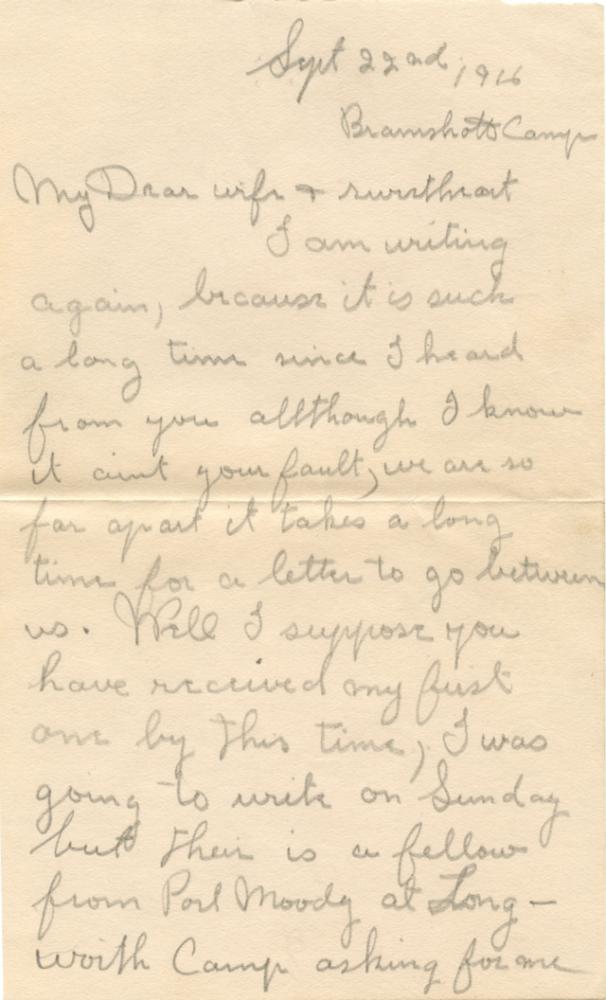 Sept 22nd, 1916
Bramshott Camp
My Dear wife + sweetheart
I am writing
again, because it is such
a long time since I heard
from you allthough I know
it aint your fault, we are so
far apart it takes a long
time for a letter to go between
us. Well I suppose you
have received my first
one by this time, I was
going to write on Sunday
but their is a fellow
from Port Moody at Long-
worth Camp asking for me